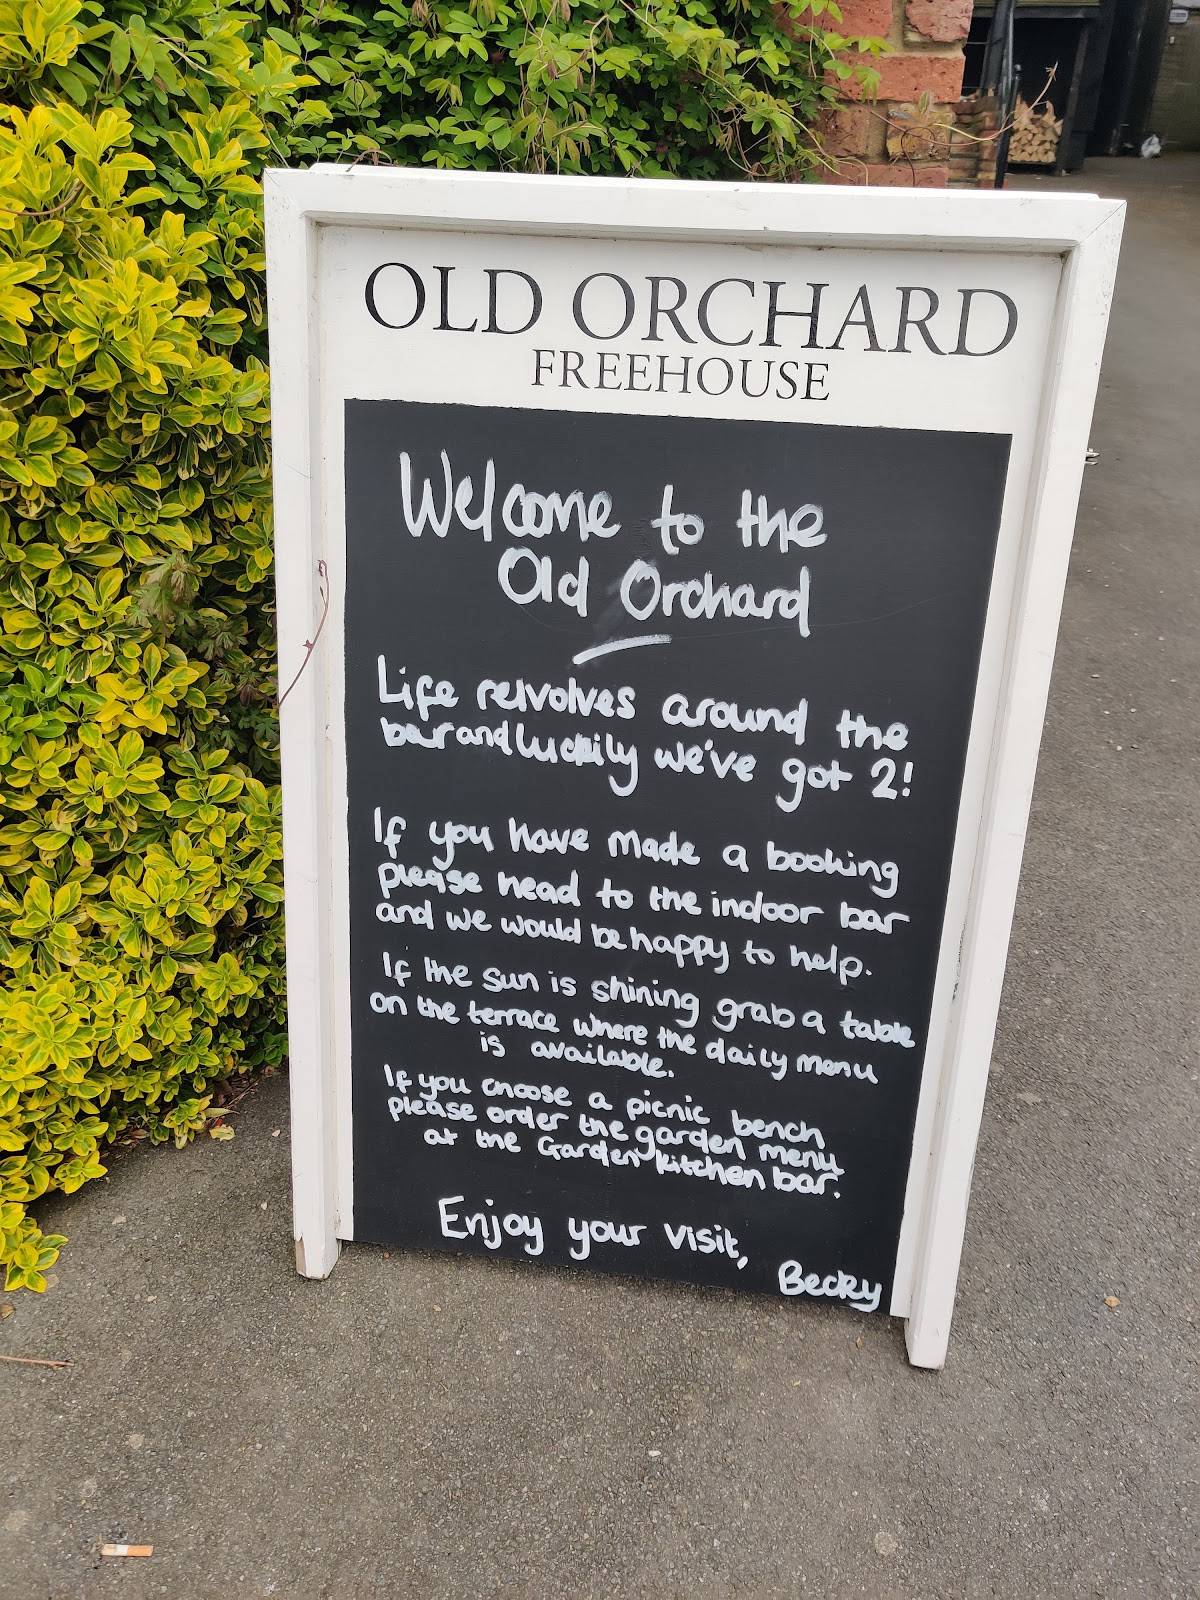 OLD ORCHARD
FREEHOUSE
Welcome to the
Old Orchard
Life relvolves around the
bar and luckily we've got 2!
If you have made a booking
please head to the indoor bar
and we would be happy to help.
If the sun is shining grab a table
on the terrace where the daily menu
is available.
If you choose a picnic bench
please order the garden menu
at the Garden Kitchen bar.
Enjoy your visit,
Becky